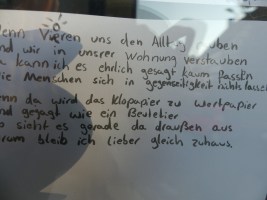 enn Vieren uns den Alltag rauben
nd wir in unsrer Wohnung verstauben
a kann ich es ehrlich gesagt kaum fassen
ie Menschen sich in gegenseitigkeit nichts lasse
enn da wird das Klopapier zu wertpapier
nd gejagt wie ein Beutetier
o sieht es gerade da draußen aus
rum bleib ich lieber gleich zuhaus.